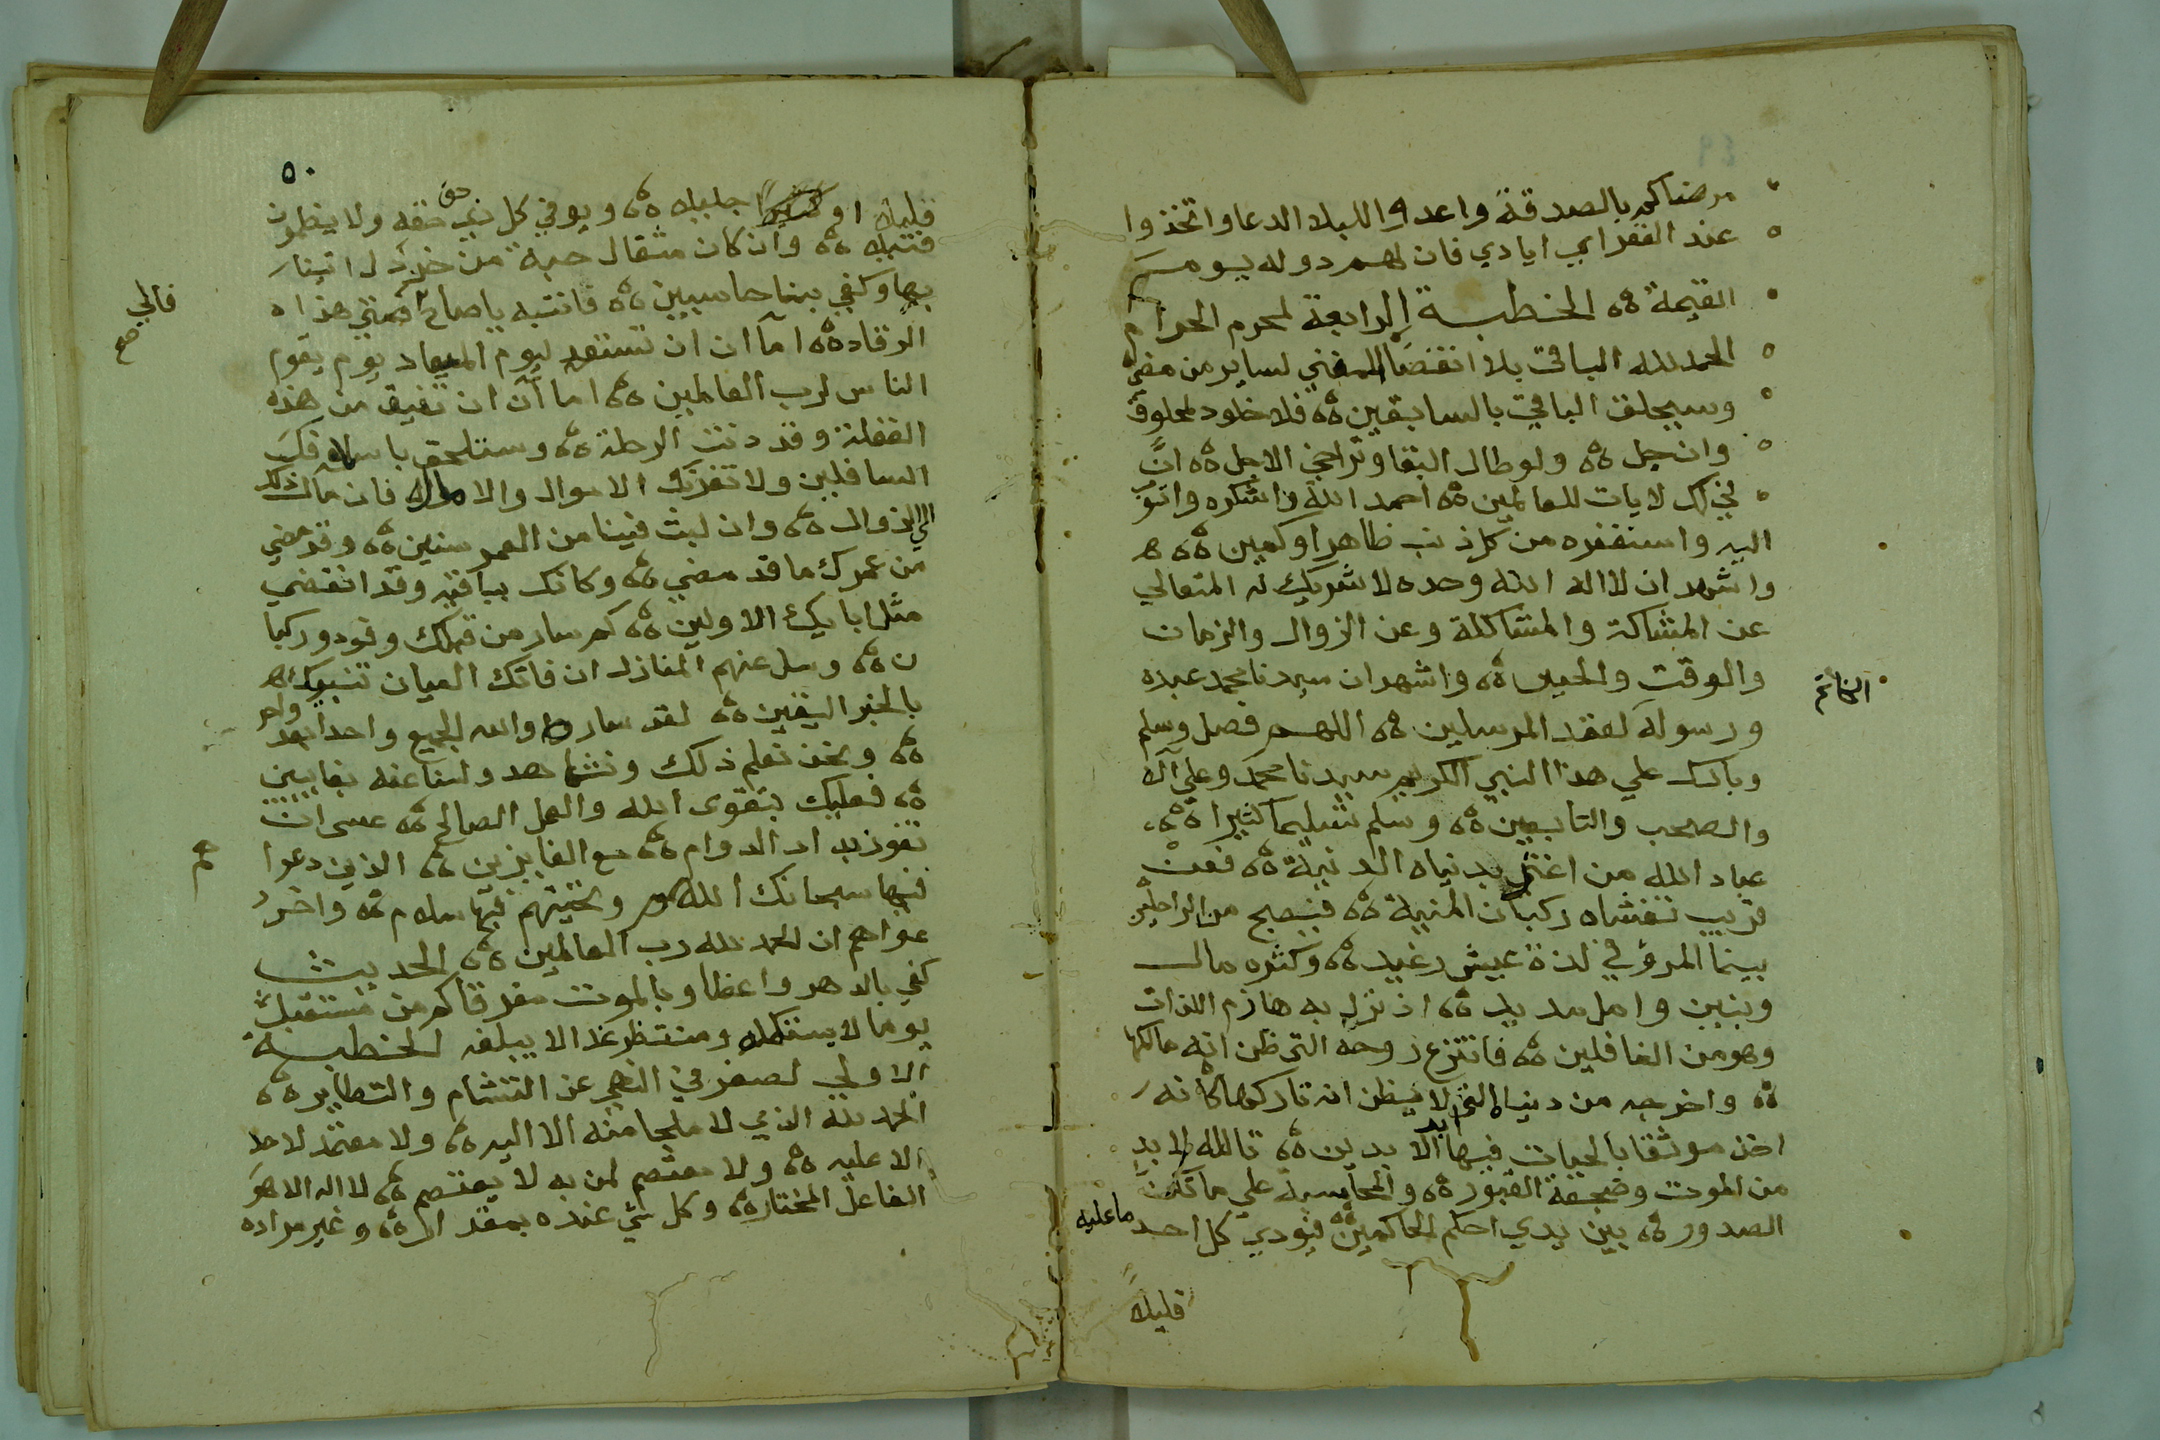 مرضاكم بالصدقة واعدوا للبلا الدعا واتخذوا
عند الفقراي ايادي فان لهم دوله يوم
القيمة ۵۵ الخطبة الرابعة لمحرم الحرام
الحمد لله الباقي بلا انقضا المفني لساير من مضي
وسيلحق الباقي بالسابقين ۵۵ فلا خلود لمخلوق
وان جل ۵۵ ولو طال البقا وتراخي الاجل ۵۵ ان
في ذلك لايات للعالمين ۵۵ احمد الله واشكره واتوب
اليه واستغفره من كل ذنب ظاهر او كمين ۵۵
واشهد ان لا اله الا الله وحده لا شريك له المتعالي
عن المشاكة والمشاكلة وعن الزوال والزمان
والوقت والحين ۵۵ واشهد ان سيدنا محمد عبده
ورسوله لعقد المرسلين ۵۵ اللهم فصل وسلم
الخاتم
وبارك علي هذا النبي الكريم سيدنا محمد وعلي آله
والصحب والتابعين ۵۵ وسلم تسليما كثيرا ۵۵
عباد الله من اغتر بدنياه الدنية ۵۵ فعن
قريب تغشاه ركبان المنية ۵۵ فيصبح من الراحلين
بينما المرؤ في لذة عيش رغيد ۵۵ وكثره مال
وبنين وامل مديد ۵۵ اذ نزل به هازم اللذات
وهو من الغافلين ۵۵ فانتزع روحه التي ظن انه مالكها
۵۵ واخرجه من دنياه التي لا يظن انه تاركها كانه
اخذ موثقا بالحيات فيها ابد الابدين ۵۵ تالله لا بد
من الموت وضجعة القبور ۵۵ والمحاسبة علي ما تكن
الصدور ۵۵ بين يدي احكم الحاكمين ۵۵ فيودي كل احد ما عليه
قليلا
۵۰
قليلا او جليلا ۵۵ ويوفي كل ذي حق حقه ولا يظلمون
فتيلا ۵۵ وان كان مثقال حبة من خردل اتينا
بها وكفي بنا حاسبين ۵۵ فانتبه يا صاح فمتي هذا
فالي صح
الرقاد ۵۵ اما آن ان تستعد ليوم الميعاد يوم يقوم
الناس لرب العالمين ۵۵ اما آن ان تفيق من هذه
الغفلة وقد دنت الرحلة ۵۵ وستلحق باسلافك
السافلين ولا تغرنك الاموال والامال فان مآل ذلك
الي الزوال ۵۵ وان لبثت فينا من العمر سنين ۵۵ وقد مضي
من عمرك ما قد مضي ۵۵ وكانك بباقيه وقد انقضي
مثل ابايك الاولين ۵۵ كم سار من قبلك وفود وركبا
ن ۵۵ وسل عنهم المنازل ان فاتك العيان تنبيك
بالخبر اليقين ۵۵ لقد سار والله الجميع واحدا بعد واحد
۵۵ ونحن نعلم ذلك ونشاهد ولسنا عنه بغايبين
۵۵ فعليك بتقوى الله والعمل الصالح ۵۵ عسى ان
تفوز بدار الدوام ۵۵ مع الفايزين ۵۵ الذين دعوا
هم
فيها سبحانك اللهم وتحيتهم فيها سلام ۵۵ واخر د
عواهم ان الحمد لله رب العالمين ۵۵ الحديث
كفي بالدهر واعظا وبالموت مفرقا كم من مستقبل
يوما لا يستكمله ومنتظر غدا لا يبلغه الخطبة
الاولي لصفر في النهي عن التشام والتطاير ۵۵
الحمد لله الذي لا ملجا منه الا اليه ۵۵ ولا معتمد لاحد
الا عليه ۵۵ ولا معتصم لمن به لا يعتصم ۵۵ لا اله الا هو
الفاعل المختار ۵۵ وكل شي عنده بمقدار ۵۵ وغير مراده